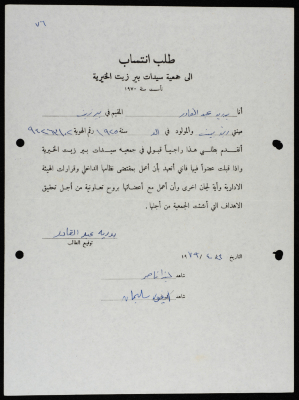 ٧٦
طلب انتساب
الى جمعية سيدات بير زيت الخيرية
تأسست سنة ١٩٥٠
أنا بدرية عبد القادر المقيم في بير زيت
مهنتي والمولود في سنة رقم الهوية
أتقدم بطلبي هذا راجياً قبولي في جمعية سيدات بير زيت الخيرية
واذا قبلت عضواً فيها فاني أتعهد بأن أعمل بمقتضى نظامها الداخلي وقرارات الهيئة
الادارية وأية لجان اخرى وأن أعمل مع أعضائها بروح تعاونية من اجل تحقيق
الاهداف التي أنشئت الجمعية من أجلها .
بدرية عبد القادر
توقيع الطالب
التاريخ
شاهد
شاهد سليمان